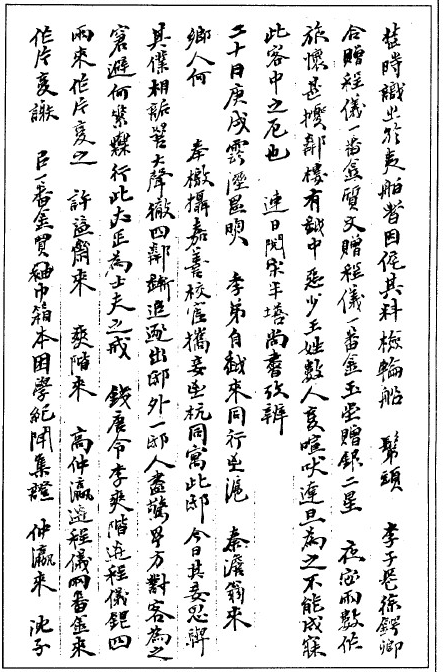 桂時識出於夷舶當因倪其料檢輪船 鬀頭 李子長徐鍔卿
合贈程儀一番金質文贈程儀一番金玉生贈銀二星 夜密雨數作
旅懷甚擾鄰樓有越中惡少王姓數人宴喧吠達旦為之不能成寐
此客中之厄也 連日閱宋半塘尚書攷辨
二十日庚戌雲溼 季弟自越來同行至滬 秦澹翁來
鄉人何 奉檄攝嘉善校官攜妾至杭同寓此邸 今日其妾忽與
其僕相詬詈大聲徹四鄰追逐出邸外一邸人盡驚方對客為之
窘避何素媟行此正為士夫之戒 錢唐令李爽階送程儀銀四
兩來作片复之 許益齋來 爽階來 高仲瀛送程儀兩番金來
作片复謝 以一番金買袖巾箱本困學紀聞集證 仲瀛來 沈子